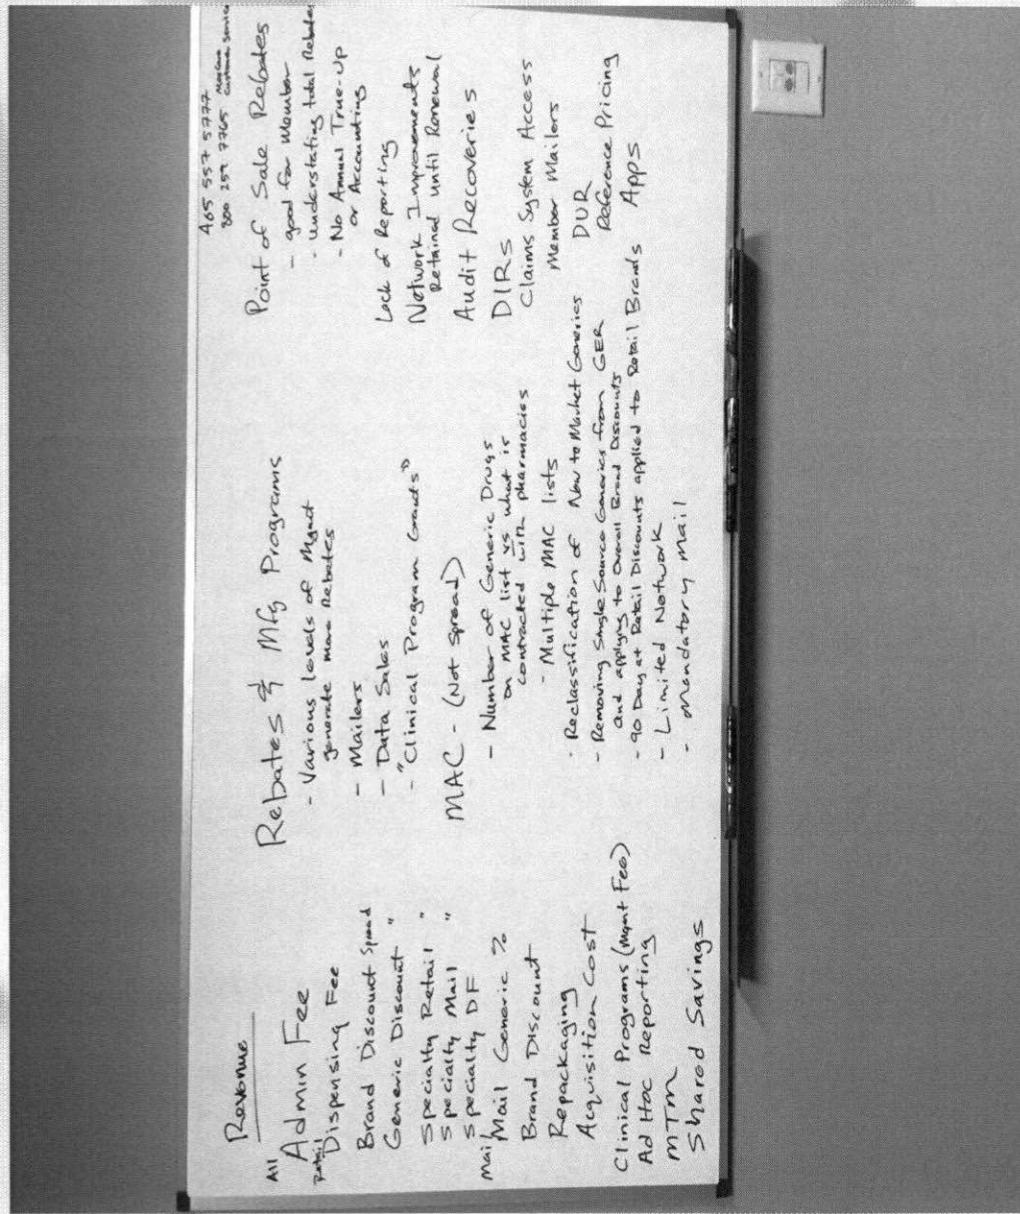 Revenue
All
Admin Fee
Retail
Dispensing Fee
Brand Discount Spread
Generic Discount "
Specialty Retail "
Specialty Mail "
Specialty DF
Mail
Mail Generic %
Brand Discount
Repackaging
Acquisition Cost
Clinical Programs (Mgmt Fee)
Ad Hoc Reporting
MTM
Shared Savings
Rebates & Mfg Programs
- Various levels of Mgmt
generate more Rebates
- Mailers
- Data Sales
- "Clinical Program Grants"
MAC - (Not Spread)
- Number of Generic Drugs
on MAC list vs what is
contracted with pharmacies
- Multiple MAC lists
- Reclassification of New to Market Generics
- Removing Single Source Generics from GER
and applying to Overall Brand Discounts
- 90 Day at Retail Discounts applied to Retail Brands
- Limited Network
- Mandatory Mail
465 557 5777
800 259 7765
Customer Service
Point of Sale Rebates
- good for Member
- Understating total Rebates
- No Annual True-Up
or Accounting
Lack of Reporting
Network Improvements
Retained until Renewal
Audit Recoveries
DIRs
Claims System Access
Member Mailers
DUR
Reference Pricing
Apps